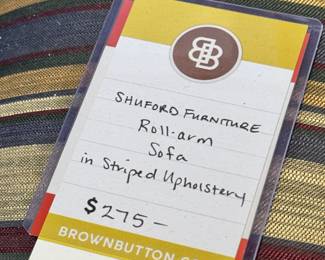 SHUFORD FURNITURE
Roll-arm
Sofa
in Striped Upholstery
$275-